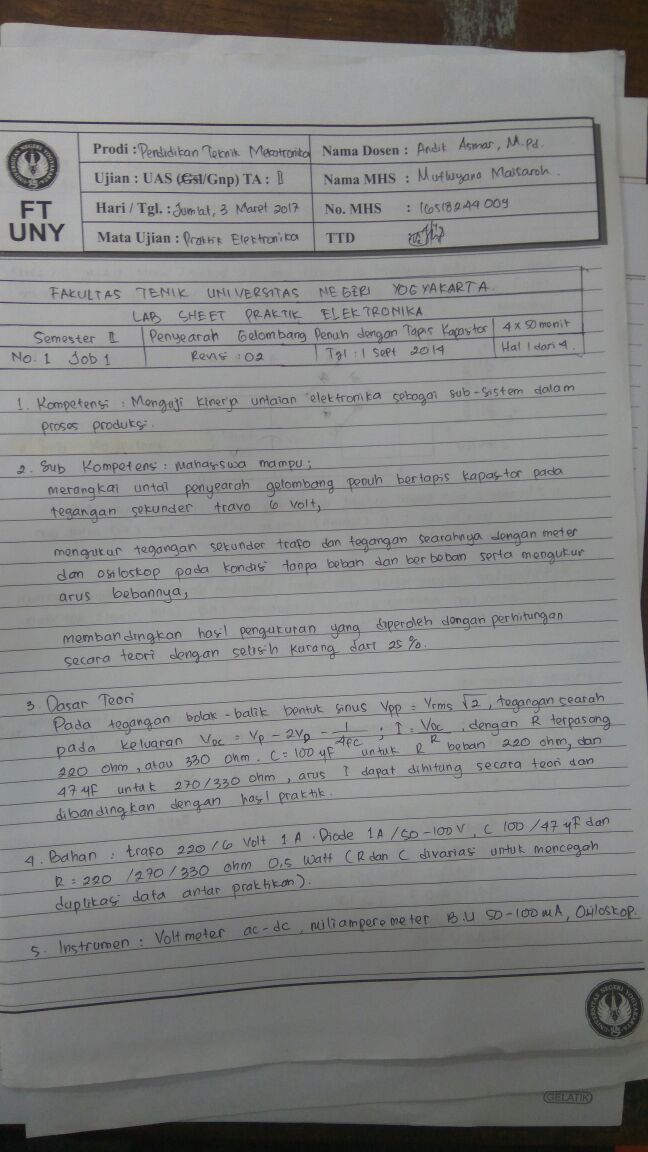 Prodi : Pendidikan Teknik Mekatronika
Nama Dosen : Andik Asmar, M.Pd.
Ujian : UAS (Gsl/Gnp) TA : II
Nama MHS : Mutwyano Maisaroh.
FT
UNY
Hari / Tgl. : Jumat, 3 Maret 2017
No. MHS : 16518244009
Mata Ujian : Praktik Elektronika
TTD
FAKULTAS TENIK UNIVERSITAS NEGERI YOGYAKARTA.
LAB SHEET PRAKTIK ELEKTRONIKA
Semester II
Penyearah Gelombang Penuh dengan Tapis Kapasitor
4 x 50 menit
No. 1 Job 1
Revisi : 02
Tgl : 1 Sept 2014
Hal 1 dari 4.
1. Kompetensi : Menguji kinerja untaian elektronika sebagai sub-sistem dalam
proses produksi.
2. Sub Kompetensi : Mahasiswa mampu;
merangkai untai penyearah gelombang penuh bertapis kapasitor pada
tegangan sekunder travo 6 volt,
mengukur tegangan sekunder trafo dan tegangan searahnya dengan meter
dan osiloskop pada kondisi tanpa beban dan berbeban serta mengukur
arus bebannya,
membandingkan hasil pengukuran yang diperoleh dengan perhitungan
secara teori dengan selisih kurang dari 25 %.
3. Dasar Teori
Pada tegangan bolak-balik bentuk sinus Vpp = Vrms √2, tegangan searah
pada keluaran VDC = Vp - 2VD - 1/4fc ; I = VDC/R, dengan R terpasang
220 ohm, atau 330 ohm. C = 100 µF untuk R beban 220 ohm, dan
47 µF untuk 270/330 ohm, arus I dapat dihitung secara teori dan
dibandingkan dengan hasil praktik.
4. Bahan : trafo 220/6 Volt 1A. Diode 1A/50-100V, C 100/47 µF dan
R = 220 /270/330 ohm 0,5 Watt (R dan C divariasi untuk mencegah
duplikasi data antar praktikan).
5. Instrumen : Voltmeter ac-dc, miliamperemeter B.U 50-100mA, Osiloskop.
GELATIK